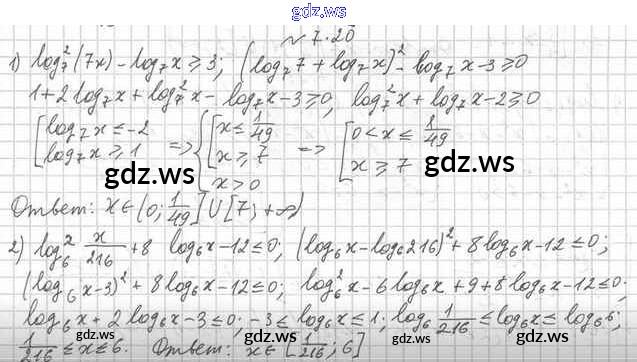 gdz.ws
№ 7.20
1) log₇²(7x) - log₇x ≥ 3; (log₇7 + log₇x)² - log₇x - 3 ≥ 0
1 + 2log₇x + log₇²x - log₇x - 3 ≥ 0, log₇²x + log₇x - 2 ≥ 0
[log₇x ≤ -2 log₇x ≥ 1 => {[x ≤ 1/49 x ≥ 7 x > 0 => [0 < x ≤ 1/49 x ≥ 7
gdz.ws gdz.ws
Ответ: x ∈ (0; 1/49] ∪ [7; +∞)
2) log₆² x/216 + 8 log₆x - 12 ≤ 0; (log₆x - log₆216)² + 8log₆x - 12 ≤ 0;
(log₆x - 3)² + 8log₆x - 12 ≤ 0; log₆²x - 6log₆x + 9 + 8log₆x - 12 ≤ 0;
log₆x + 2log₆x - 3 ≤ 0; -3 ≤ log₆x ≤ 1; log₆ 1/216 ≤ log₆x ≤ log₆6;
1/216 ≤ x ≤ 6. Ответ: x ∈ [1/216; 6]
gdz.ws gdz.ws